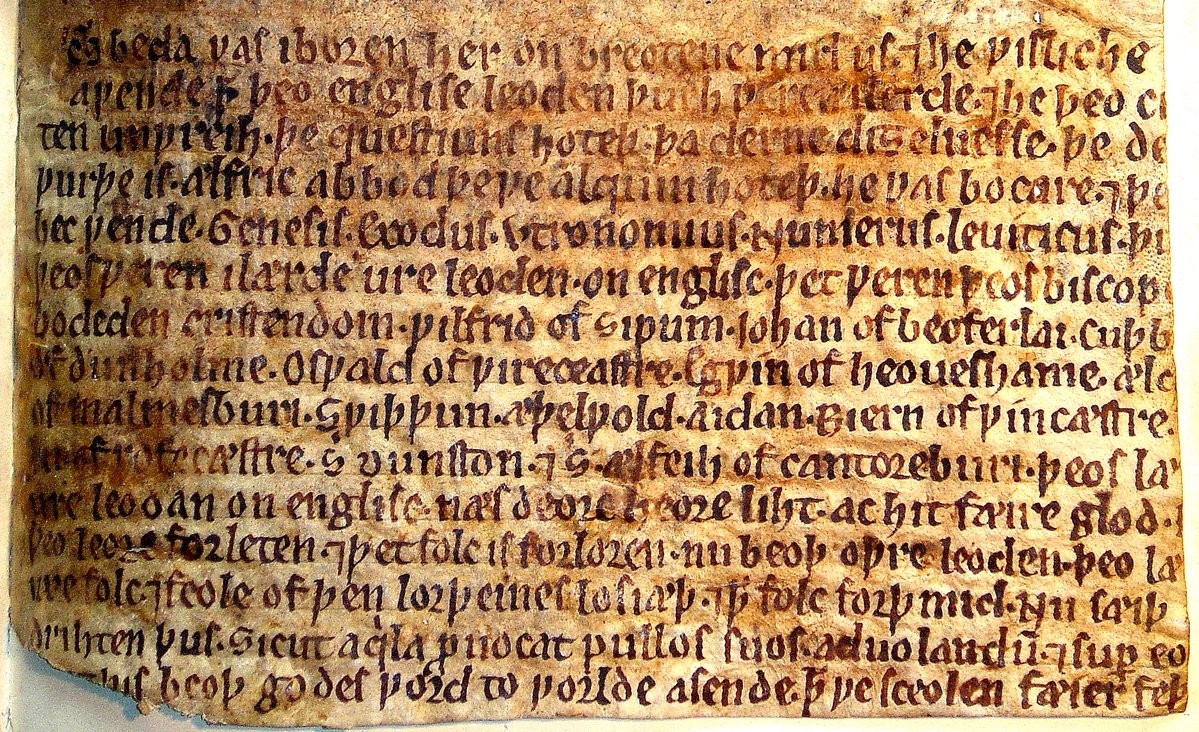 beda ƿas iboren her on breotene mid us. ⁊ he ƿisliche
aƿende. þ̄ þeo englise leoden þurh ƿeren ilerde. ⁊ he þeo c
ten unƿreih. þe questiuns hoteþ. þa derne diȝelnesse. þe de
ƿurþe is. ælfric abbod þe ƿe alquin hoteþ. he ƿas bocare. ⁊ þe
bec ƿende. Genesis. Exodus. Vtronomius. Numerus. leuiticus. þu
þeos ƿeren ilærde ure leoden. on englisc. þet ƿeren þeos biscop
bodeden cristendom. ƿilfrid of ripum. iohan of beoferlai. cuþb
of dunholme. osƿald of ƿireceastre. Egƿin of heoueshame. æld
of malmesburi. Sƿiþþun. æþelƿold. aidan. Biern of ƿincæstre.
of rofecæstre. S̄ dunston. ⁊ S̄. ælfeih of cantoreburi. þeos læ
ure leodan on englisc. næs deorc heore liht. ac hit fæire glod.
þeo leore forleten. ⁊ þet folc is forloren. nu beoþ oþre leoden. þeo læ
ure folc. ⁊ feole of þen lorþeines losiæþ. ⁊ þ̄ folc forþ mid. Nu sæiþ
drihten þus. Sicut aq̇la ꝓuocat pullos suos. ad uolandū. ⁊ suꝑ eo
beoþ godes ƿord to ƿorlde asende. þ̄ ƿe sceolen fæier feþ